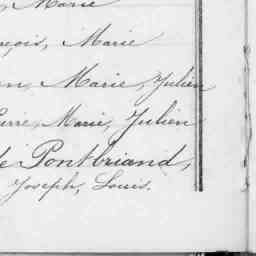 Marie
çois, Marie
Marie, Julien
Marie, Julien
de Pontbriand,
Joseph, Louis.